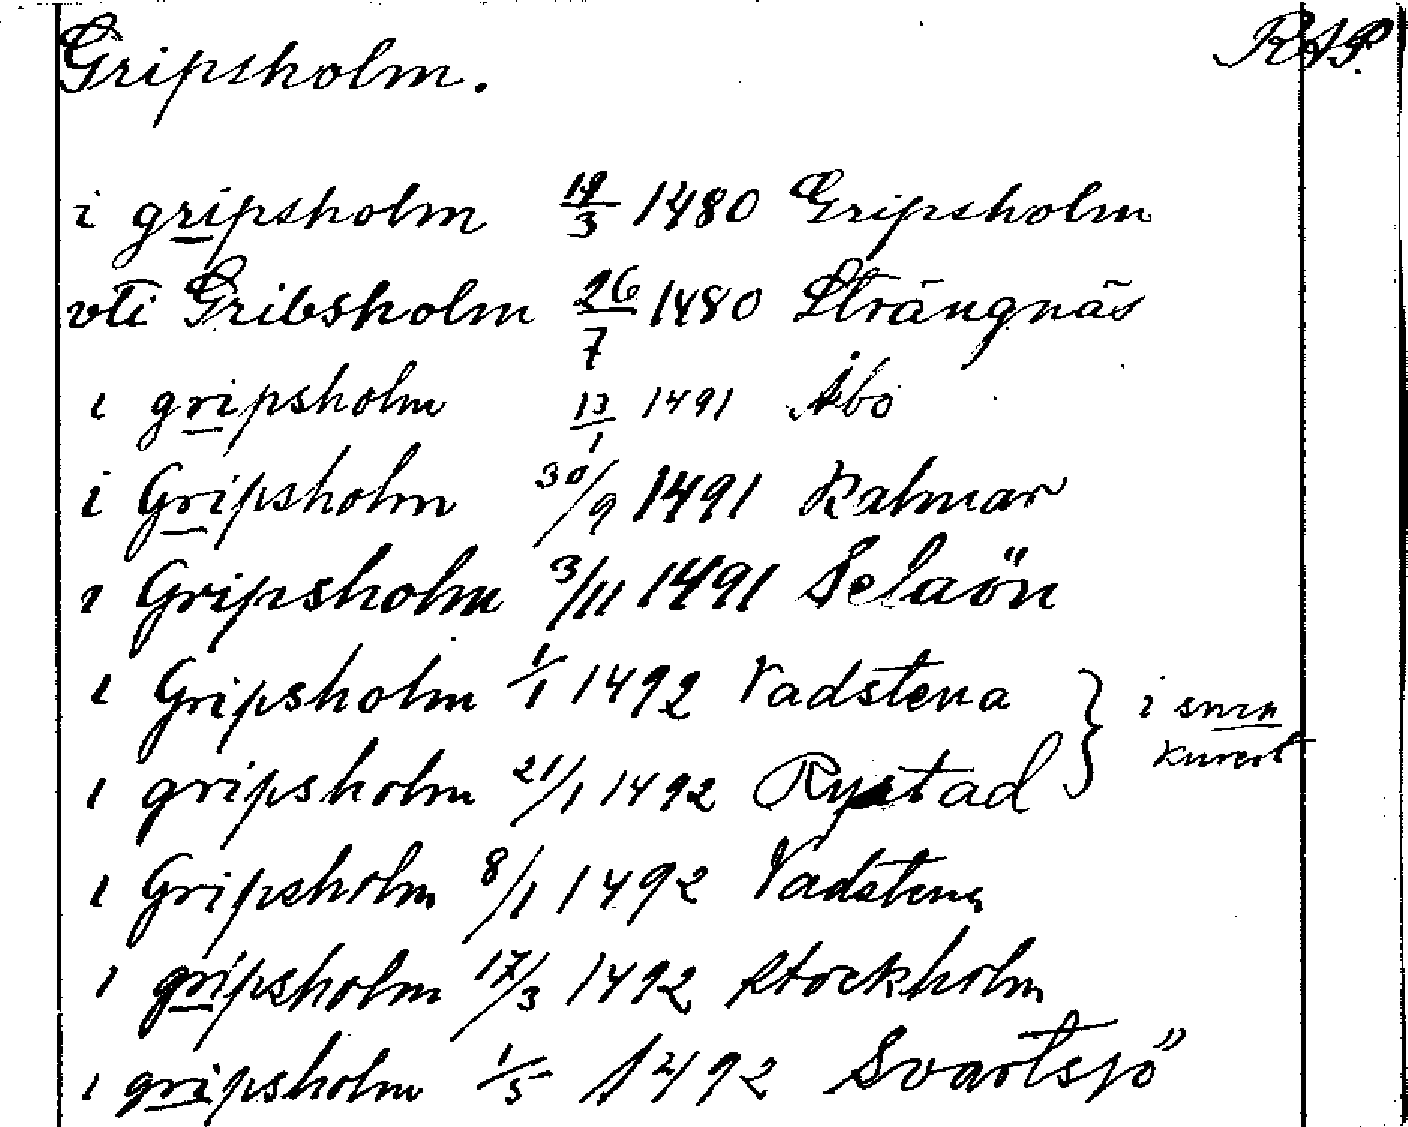 Gripsholm. RAP.
i gripsholm 19/3 1480 Gripsholm
vti Gribsholm 26/7 1480 Strängnäs
i gripsholm 13/1 1491 Åbo
i Gripsholm 30/9 1491 Kalmar
i Gripsholm 3/11 1491 Selaön
i Gripsholm 1/1 1492 Vadstena
i gripsholm 21/1 1492 Rystad } i smn
i Gripsholm 8/1 1492 Vadstena
i gripsholm 17/3 1492 Stockholm
i gripsholm 1/5 1492 Svartsjö